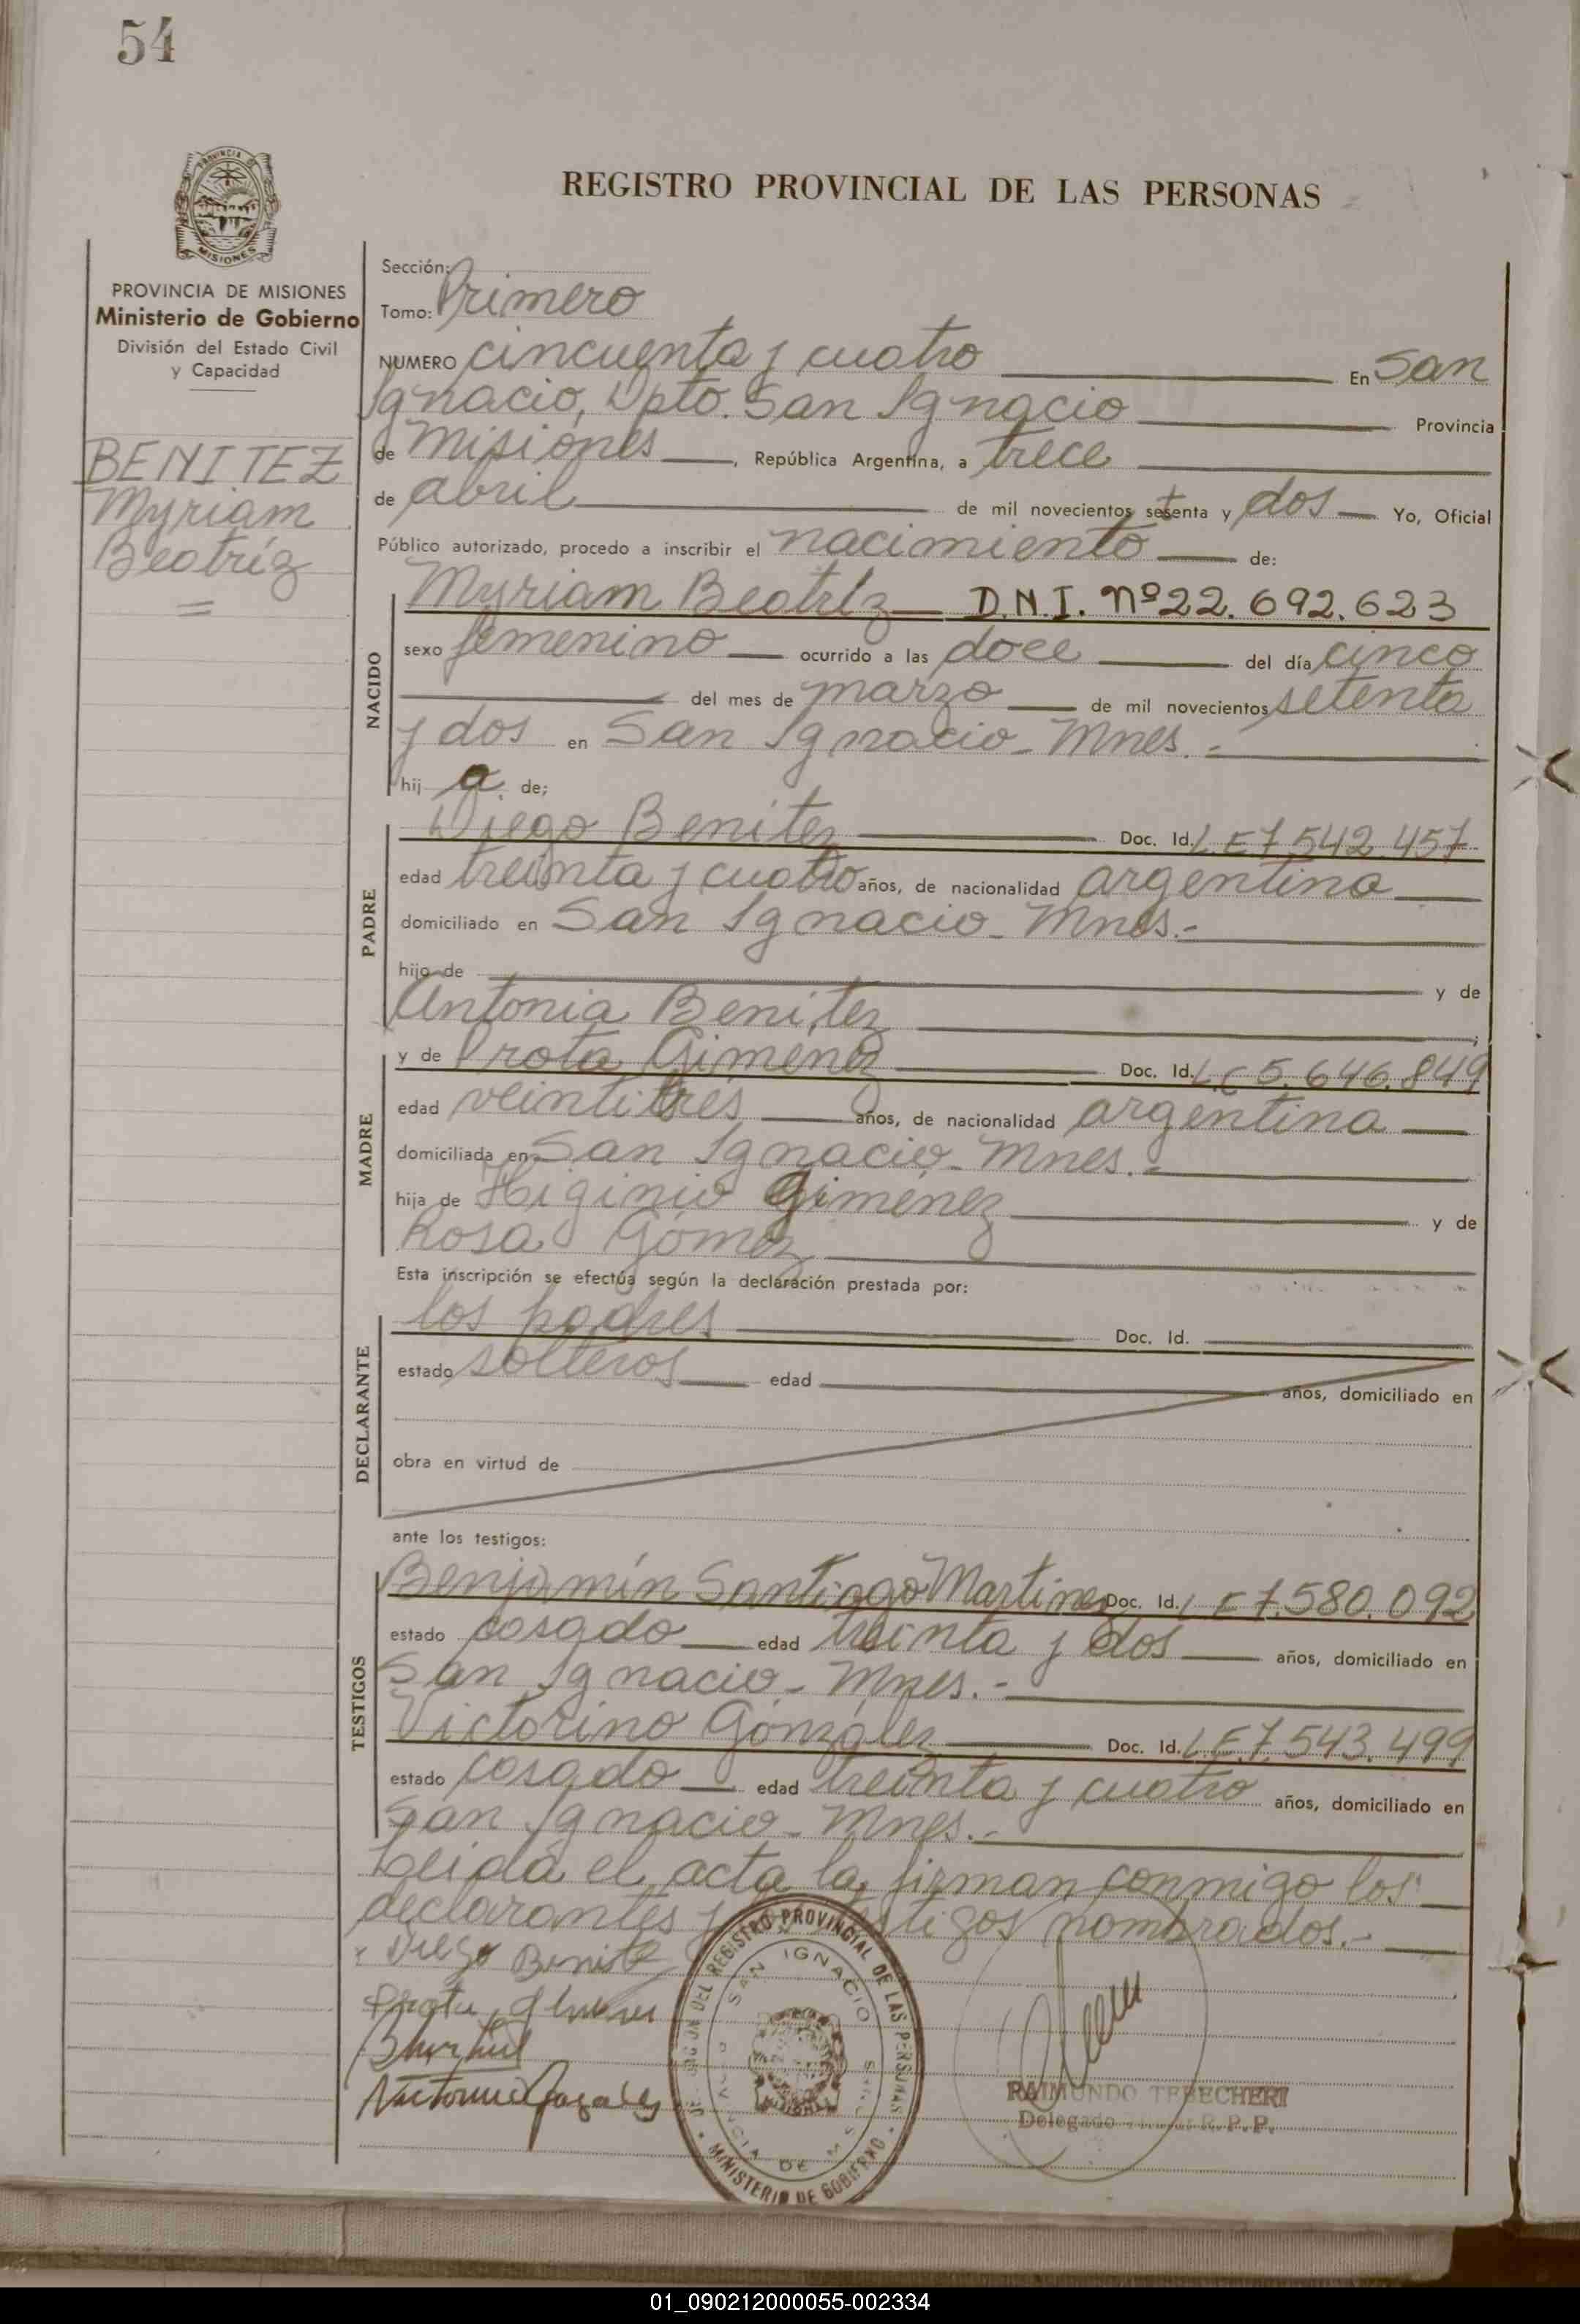 54
PROVINCIA DE
MISIONES
REGISTRO PROVINCIAL DE LAS PERSONAS
PROVINCIA DE MISIONES
Ministerio de Gobierno
División del Estado Civil
y Capacidad
BENITEZ
Myriam
Beatríz
Sección:
Tomo: Primero
NUMERO cincuenta y cuatro En San
Ignacio, Dpto. San Ignacio Provincia
de Misiones, República Argentina, a trece
de abril de mil novecientos setenta y dos Yo, Oficial
Público autorizado, procedo a inscribir el nacimiento de:
NACIDO
Myriam Beatríz D.N.I. nº 22.692.623
sexo femenino ocurrido a las doce del día cinco
del mes de marzo de mil novecientos setenta
y dos en San Ignacio - Mnes. -
hij a de;
PADRE
Diego Benitez Doc. Id. L.E 7.542.457
edad treinta y cuatro años, de nacionalidad argentina
domiciliado en San Ignacio - Mnes.-
hijo de y de
Antonia Benitez ;
MADRE
y de Prota Giménez Doc. Id. L.C 5.646.849
edad veintitrés años, de nacionalidad argentina
domiciliada en San Ignacio - Mnes.-
hija de Higinio Giménez y de
Rosa Gómez
Esta inscripción se efectúa según la declaración prestada por:
DECLARANTE
los padres Doc. Id.
estado solteros edad años, domiciliado en
obra en virtud de
ante los testigos:
TESTIGOS
Benjamín Santiago Martinez Doc. Id. L E 7.580.092
estado casado edad treinta y dos años, domiciliado en
San Ignacio - Mnes.-
Victorino González Doc. Id. L.E.7.543.499
estado casado edad treinta y cuatro años, domiciliado en
San Ignacio - Mnes.-
Leida el acta la firman conmigo los
declarantes y testigos nombrados.-
Diego Benitez
Prota
Victorino Gonzalez
DEL REGISTRO PROVINCIAL DE LAS PERSONAS
SAN IGNACIO
PROVINCIA DE MISIONES
MINISTERIO DE GOBIERNO
RAIMUNDO TRBECHERI
Delegado R. P. P.
01_090212000055-002334